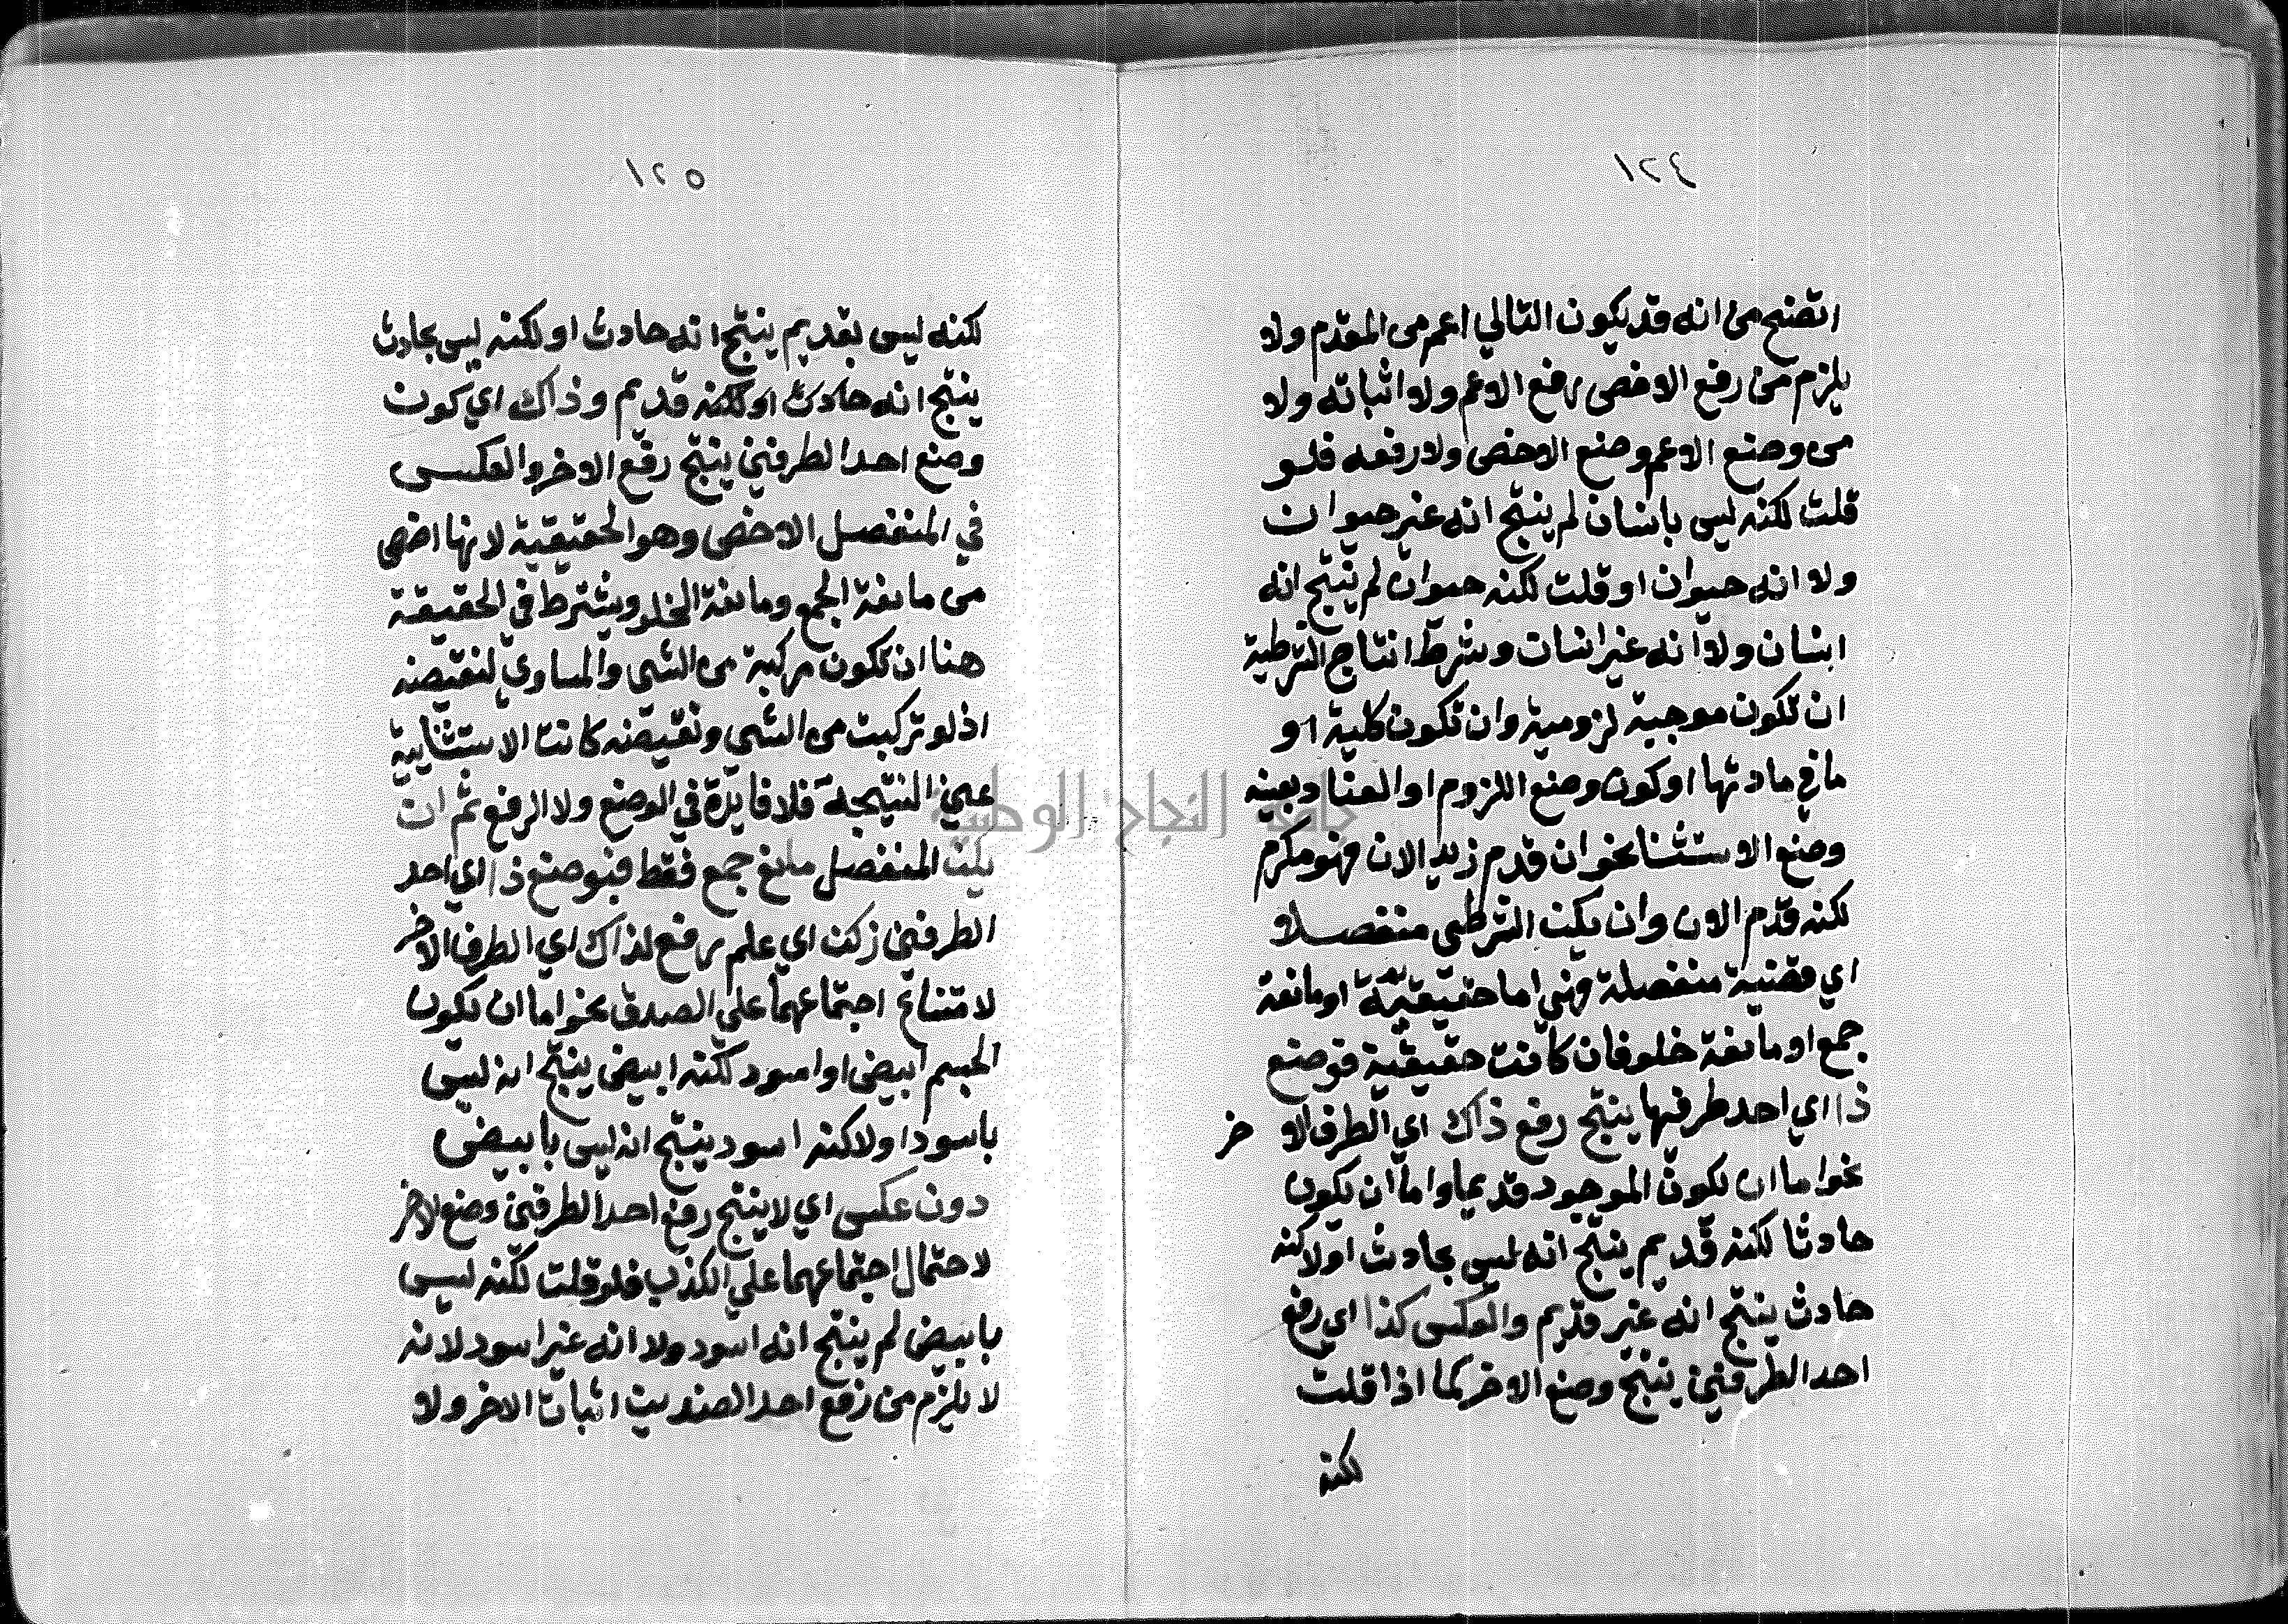 ١٢٤
اتضح من انه قد يكون التالي اعم من المقدم ولا
يلزم من رفع الاخص رفع الاعم ولا اثباته ولا
من وضع الاعم وضع الاخص ولا رفعه فلو
قلت لكنه ليس بانسان لم ينتج انه غير حيوان
ولا انه حيوان او قلت لكنه حيوان لم ينتج انه
انسان ولا انه غير انسان وشرط انتاج الشرطية
ان تكون موجبة لزومية وان تكون كلية او
ما في مادتها او كون وضع اللزوم او العناد بعينه
وضع الاستثنا نحو ان قدم زيد الان فهو مكرم
لكنه قدم الان وان يكن الشرطي منفصلا
اي قضية منفصلة فهي اما حقيقية او مانعة
جمع او مانعة خلو فان كانت حقيقية فوضع
ذا اي احد طرفيها ينتج رفع ذاك اي الطرف الاخر
نحو اما ان يكون الموجود قديما واما ان يكون
حادثا لكنه قديم ينتج انه ليس بحادث او لاكنه
حادث ينتج انه غير قديم والعكس كذا اي رفع
احد الطرفين ينتج وضع الاخر كما اذا قلت
لكنه
١٢٥
لكنه ليس بقديم ينتج انه حادث او لكنه ليس بحادث
ينتج انه حادث او لكنه قديم وذاك اي كون
وضع احد الطرفين ينتج رفع الاخر والعكس
في المنفصل الاخص وهو الحقيقية لانها اخص
من مانعة الجمع ومانعة الخلو ويشترط في الحقيقة
هنا ان تكون مركبة من الشي والمساوي لنقيضه
اذ لو تركبت من الشي ونقيضه كانت الاستثنايية
عين النتيجة فلا فايدة في الوضع ولا الرفع ثم ان
يكن المنفصل مانع جمع فقط فبوضع ذا اي احد
الطرفين زكن اي علم رفع لذاك اي الطرف الاخر
لامتناع اجتماعهما علي الصدق نحو اما ان يكون
الجسم ابيض او اسود لكنه ابيض ينتج انه ليس
باسود او لاكنه اسود ينتج انه ليس بابيض
دون عكس اي لا ينتج رفع احد الطرفين وضع الاخر
لاحتمال اجتماعهما علي الكذب فلو قلت لكنه ليس
بابيض لم ينتج انه اسود ولا انه غير اسود لانه
لا يلزم من رفع احد الضدين اثبات الاخر ولا
جامعة النجاح الوطنية